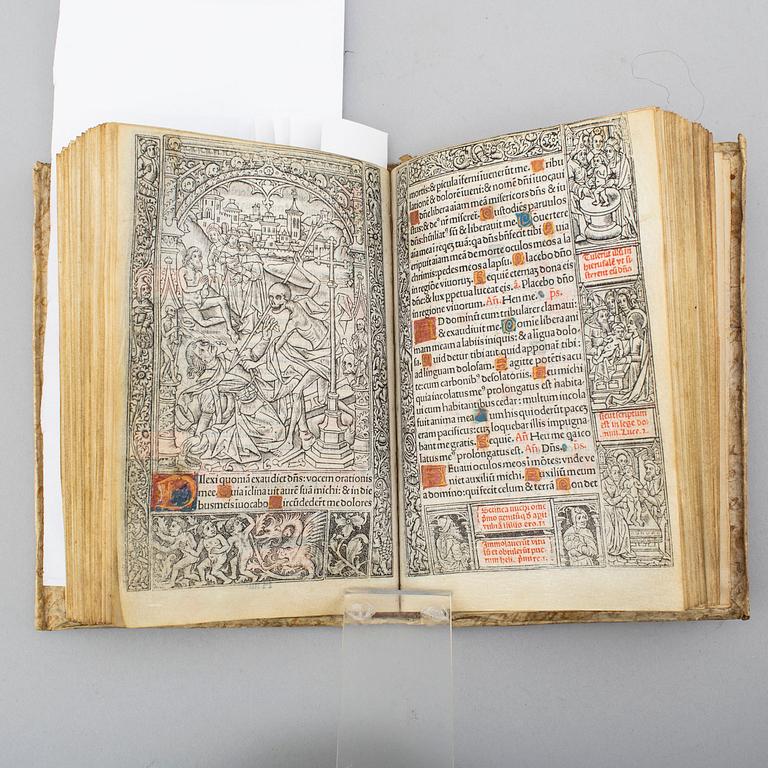 Dilexi quoniã exaudiet dñs: vocem orationis
mee. Quia ĩclina vit aurẽ suã michi: & in die
bus meis ĩuocabo. Circũdedert me dolores
mortis: & picula ĩferni ĩuenerũt me. Tribu
lationẽ & dolorẽ ĩueni: & nomẽ dñi ĩuocaui
O dñe libera aĩam meã misericors dñs: & iu
stus: & deꝰ nr̃ miseret. Custodiẽs paruulos
dñs: hũiliatꝰ sũ: & liberauit me. Conuertere
aĩa mea ĩ reqẽ tuã: qa dñs bñfecit tibi. Quia
eripuit aĩam meã de morte: oculos meos a la
chrimis: pedes meos a lapsu. Placebo dñõ
in regiõe viuorũ. Requiẽ eternaz dona eis
dñe: & lux ppetua luceat eis. ã. Placebo dñõ
in regione viuorum. Añ. Heu me. ps.
AD dominũ cum tribularer clamaui:
& exaudiuit me. Domine libera ani
mam meam a labiis iniquis: & a lĩgua dolo
sa. Quid detur tibi aut quid apponat̃ tibi:
ad linguam dolosam. Sagitte potẽtis acu
te: cum carbonibꝰ desolatoriis. Heu michi
quia ĩcolatus meꝰ prolongatus est: habita
ui cum habitantibus cedar: multum incola
fuit anima mea. Cum his qui oderũt pacez
eram pacificus: cuz loquebar illis impugna
bant me gratis. Requiẽ. Añ. Heu me qa ĩco
latus meꝰ prolongatus est. Añ. Dñs. ps.
LEuaui oculos meos ĩ mõtes: vnde ve
niet auxiliũ michi. Auxiliũ meum
a domino: qui fecit celum & terrã. Non det
Tulerũt illũ in
hierusalẽ vt si
sterent eũ dñõ
sicut scriptum
est in lege do
mini. Luce. 2.
Sctifica michi om̃e
pmogenitũ qd aperit
vuluã
Immolauerũt vitu
lũ & obtulerũt pue
rum heli. pmi re. 1.